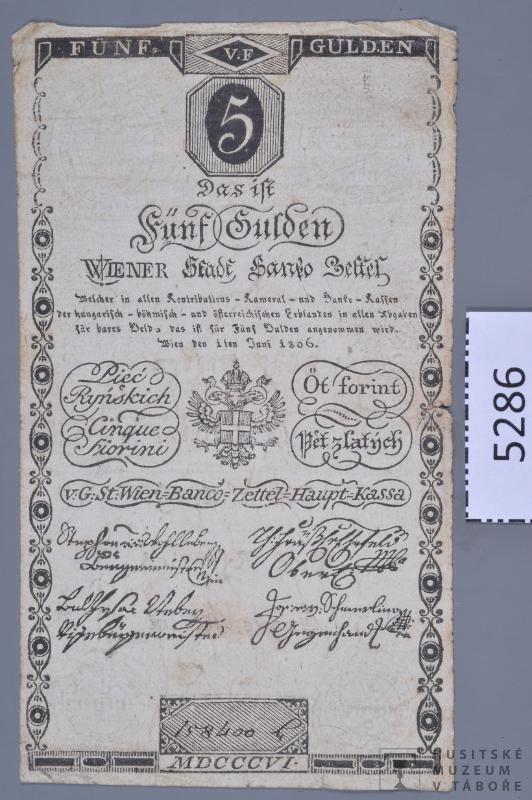 FÜNF. V.F GULDEN
5
Das ist
Fünf Gulden
WIENER Stadt Banko Zettel
Welcher in allen Kontributions - Kameral - und Banko - Kassen
der hungarisch - böhmisch - und österreichischen Erblanden in allen Abgaben
für bares Geld, das ist für Fünf Gulden angenommen wird.
Wien den 1ten Juni 1806.
Pięć
Ryńskich
Cinque
Fiorini
Öt forint
Pět zlatých
v: G: St: Wien=Banco=Zettel=Haupt=Kassa
Burgermeister
158400
MDCCCVI.
5286
HUSITSKÉ
MUZEUM
V TÁBOŘE